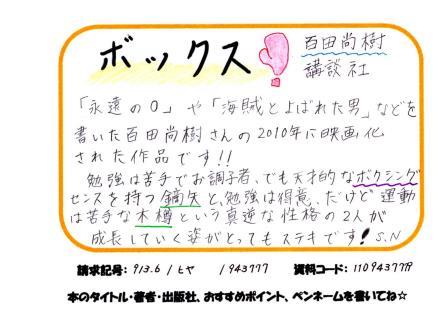 ボックス!
百田尚樹
講談社
「永遠の0」や「海賊とよばれた男」などを
書いた百田尚樹さんの2010年に映画化
された作品です!!
勉強は苦手でお調子者、でも天才的なボクシング
センスを持つ鏑矢と、勉強は得意、だけど運動
は苦手な木樽という真逆な性格の2人が
成長していく姿がとってもステキです! S.N
請求記号: 913.6 / ヒヤ / 943777 資料コード: 110943777
本のタイトル・著者・出版社、おすすめポイント、ペンネームを書いてね☆